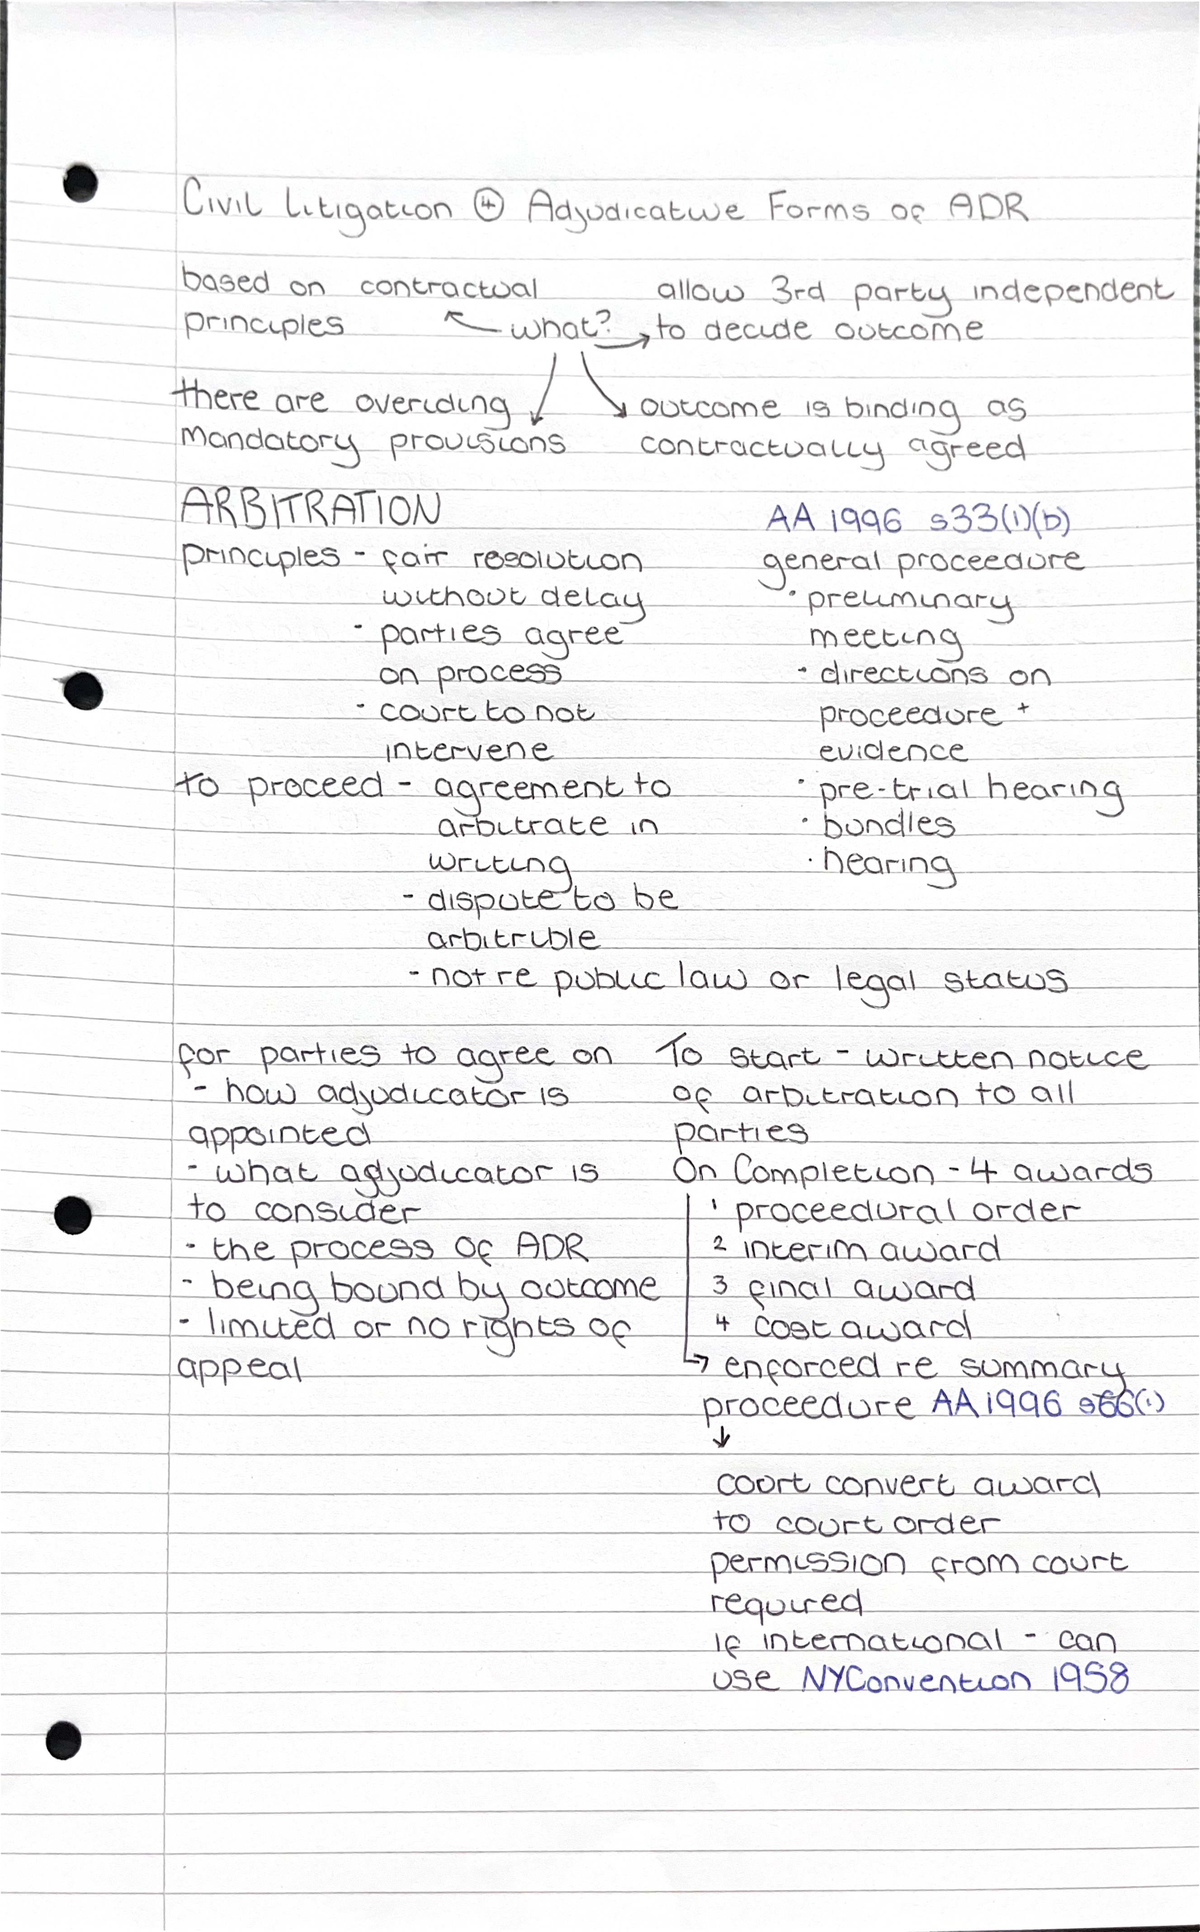 Civil Litigation ④ Adjudicative Forms of ADR
based on contractual
principles
what?
allow 3rd party independent
to decide outcome
there are overiding
mandatory provisions
outcome is binding as
contractually agreed
ARBITRATION
principles - fair resolution
without delay
- parties agree
on process
- court to not
intervene
to proceed - agreement to
arbitrate in
writing
- dispute to be
arbitrible
- not re public law or legal status
AA 1996 s33(1)(b)
general proceedure
· preliminary
meeting
- directions on
proceedure +
evidence
· pre-trial hearing
· bundles
· hearing
for parties to agree on
- how adjudicator is
appointed
- what adjudicator is
to consider
- the process of ADR
- being bound by outcome
- limited or no rights of
appeal
To start - written notice
of arbitration to all
parties
On Completion - 4 awards
1 proceedural order
2 interim award
3 final award
4 cost award
↳ enforced re summary
proceedure AA 1996 s66(1)
↓
court convert award
to court order
permission from court
required
If international - can
use NYConvention 1958